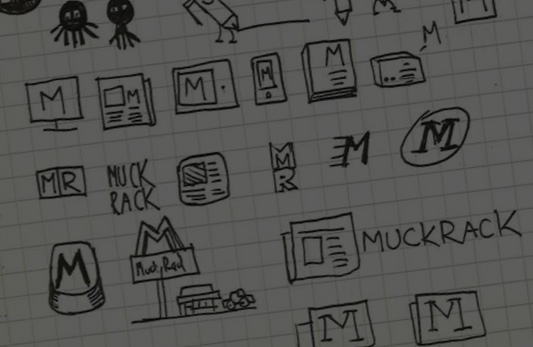 M
M
M
M
M
M
M
M
MR
MUCK
RACK
M
R
M
M
M
M
Muck Rack
MUCKRACK
M
M